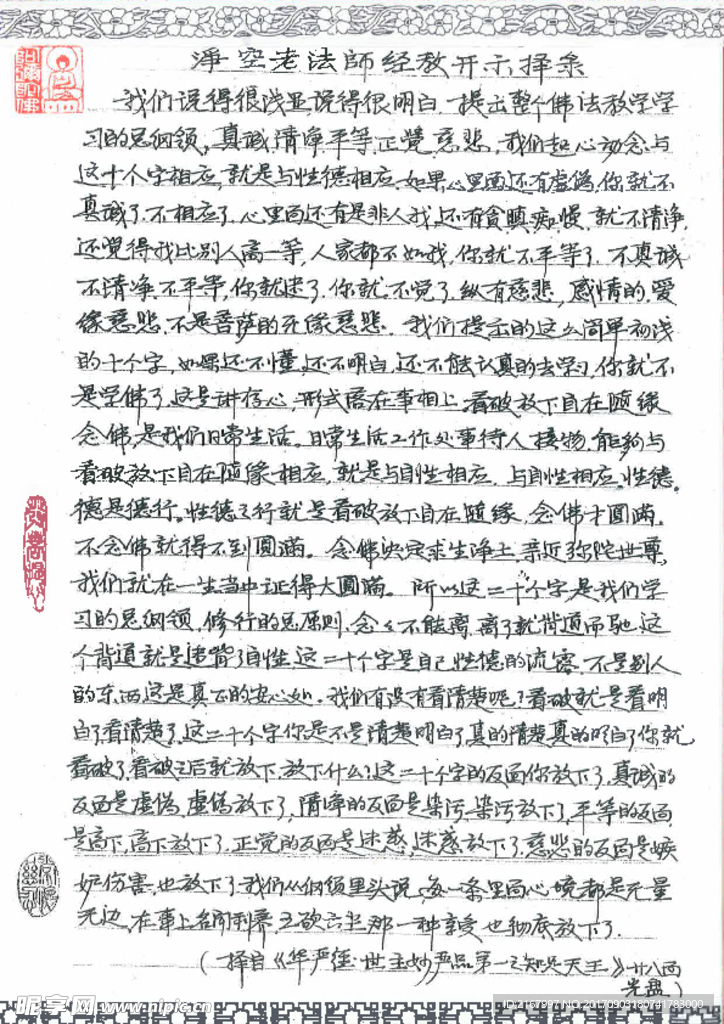 淨空老法師经教开示择录
我们说得很浅显,说得很明白,提出整个佛法教学学
习的总纲领,真诚、清净、平等、正觉、慈悲,我们起心动念与
这十个字相应,就是与性德相应。如果心里面还有虚伪,你就不
真诚了,不相应了,心里面还有是非人我,还有贪瞋痴慢,就不清净,
还觉得我比别人高一等,人家都不如我,你就不平等了,不真诚
不清净、不平等,你就迷了,你就不觉了,纵有慈悲,感情的、爱
缘慈悲,不是菩萨的无缘慈悲。我们提示的这么简单初浅
的十个字,如果还不懂,还不明白,还不能认真的去学习,你就不
是学佛了,这是讲存心,形式落在事相上,看破放下自在随缘
念佛,是我们日常生活。日常生活工作处事待人接物,能够与
看破放下自在随缘相应,就是与自性相应,与自性相应,性德。
德是德行。性德之行就是看破放下自在随缘,念佛才圆满。
不念佛就得不到圆满。念佛决定求生净土,亲近弥陀世尊,
我们就在一生当中证得大圆满。所以这二十个字是我们学
习的总纲领,修行的总原则,念念不能离,离了就背道而驰,这
个背道就是违背了自性,这二十个字是自己性德的流露,不是别人
的东西,这是真正的安心处。我们有没有看清楚呢?看破就是看明
白了看清楚了,这二十个字你是不是清楚明白了,真的清楚真的明白了,你就
看破了,看破之后就放下,放下什么?这二十个字的反面你放下了,真诚的
反面是虚伪,虚伪放下了,清净的反面是染污,染污放下了,平等的反面
是高下,高下放下了,正觉的反面是迷惑,迷惑放下了,慈悲的反面是嫉
妒伤害,也放下了。我们从纲领里头说,每一条里面心境都是无量
无边,在事上名闻利养、五欲六尘那一种享受也彻底放下了。
(择自《华严经·世主妙严品第一之知足天王》廿八面
光盘)
昵享网 www.nipic.cn
ID:2167997 NO:20170903180741783000